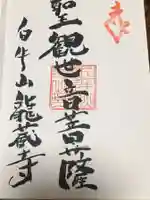 奉
聖観世音菩薩
白牛山龍蔵寺